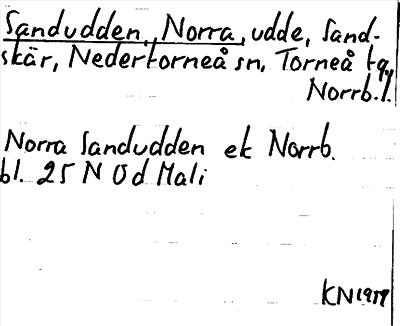 Sandudden, Norra, udde, Sand-
skär, Nedertorneå sn, Torneå tg,
Norrb. l.
Norra Sandudden ek Norrb.
bl. 25 N Öd Mali
KN 1979